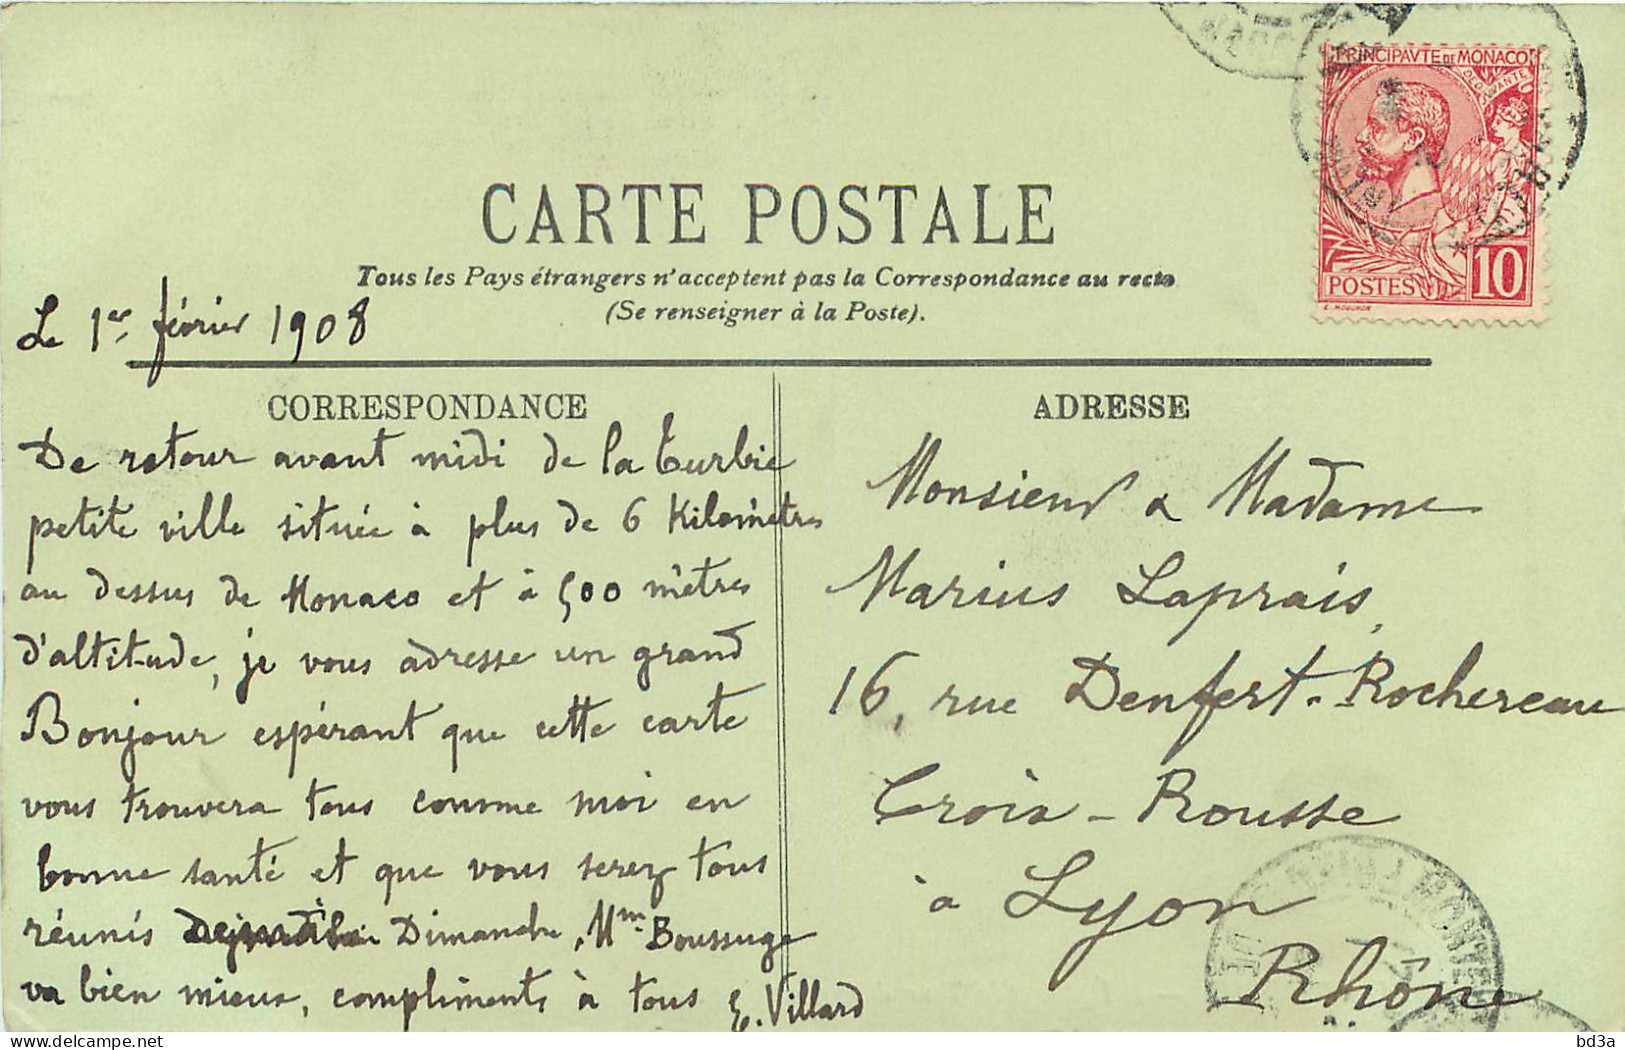 PRINCIPAVTE DE MONACO
DEO JUVANTE
POSTES
10
E. MOUCHON
CARTE POSTALE
Tous les Pays étrangers n'acceptent pas la Correspondance au recto
(Se renseigner à la Poste).
Le 1er février 1908
CORRESPONDANCE
De retour avant midi de la Turbie
petite ville située à plus de 6 Kilomètres
au dessus de Monaco et à 500 mètres
d'altitude, je vous adresse un grand
Bonjour espérant que cette carte
vous trouvera tous comme moi en
bonne santé et que vous serez tous
réunis Dimanche, Mme Boussuge
va bien mieux, compliments à tous E. Villard
ADRESSE
Monsieur & Madame
Marius Laprais,
16, rue Denfert-Rochereau
Croix-Rousse
à Lyon
Rhône
bd3a